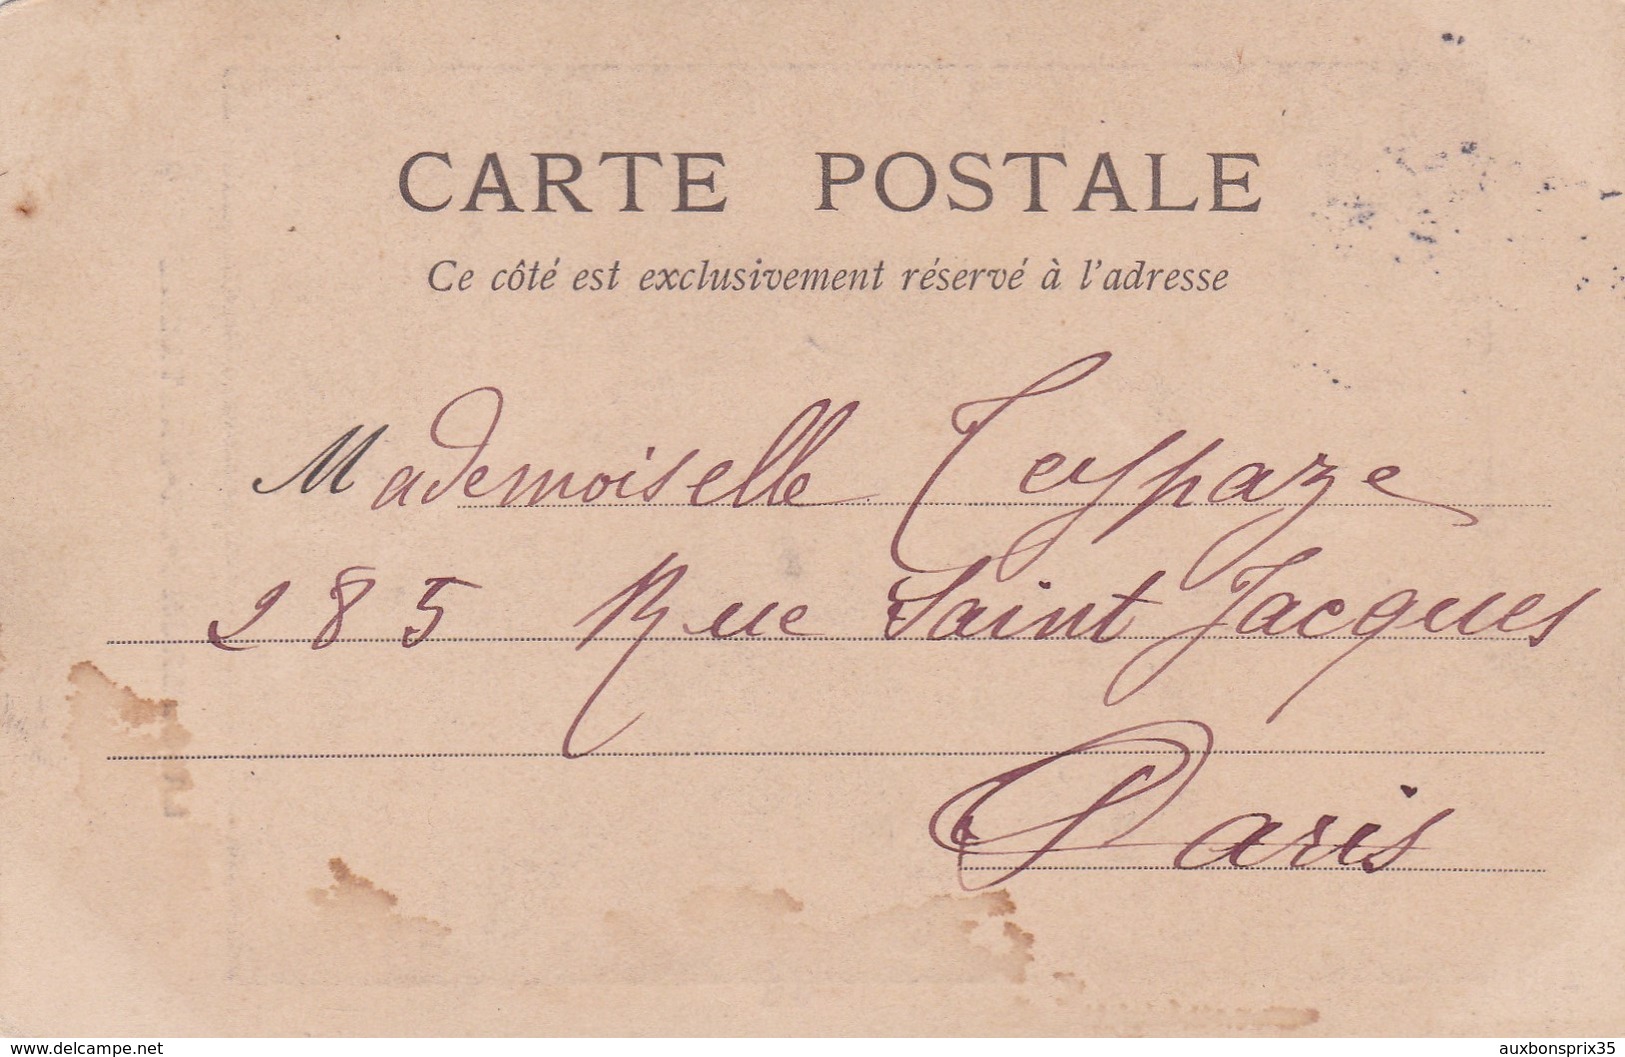 CARTE POSTALE
Ce côté est exclusivement réservé à l'adresse
Mademoiselle Teypaze
285 Rue Saint Jacques
Paris
www.delcampe.net
auxbonsprix35